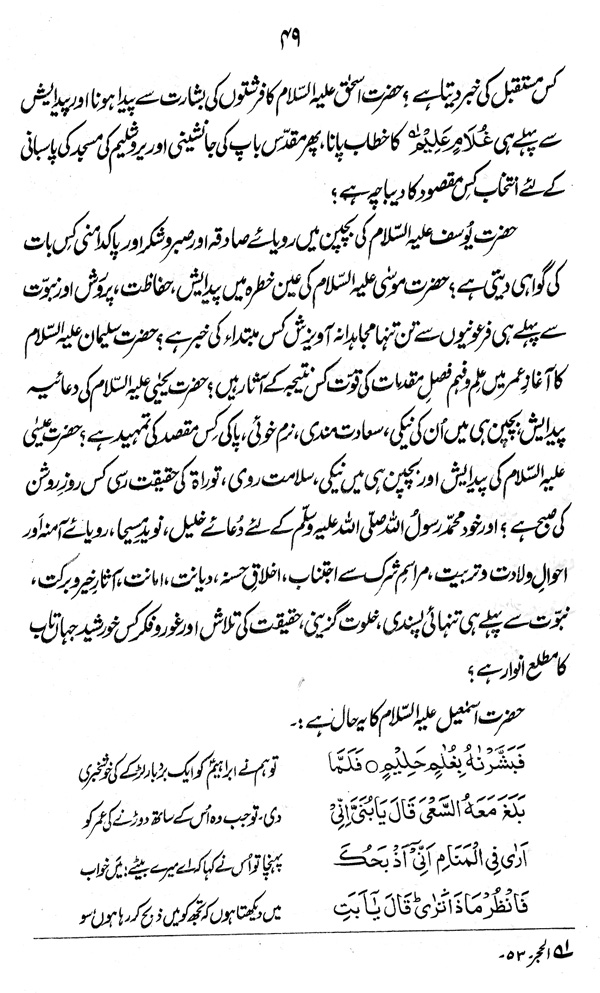 ۴۹
کس مستقبل کی خبر دیتا ہے؟ حضرت اسحٰق علیہ السّلام کا فرشتوں کی بشارت سے پیدا ہونا اور پیدایش
سے پہلے ہی غُلَامٍ عَلِیْمٍ ؎۱ کا خطاب پانا، پھر مقدّس باپ کی جانشینی اور یروشلیم کی مسجد کی پاسبانی
کے لئے انتخاب کس مقصود کا دیباچہ ہے؟
حضرت یُوسف علیہ السّلام کی بچپن میں رویائے صادقہ اور صبر و شکر اور پاکدامنی کس بات
کی گواہی دیتی ہے؟ حضرت موسٰی علیہ السّلام کی عین خطرہ میں پیدایش، حفاظت، پرورش اور نبوّت
سے پہلے ہی فرعونیوں سے تن تنہا مجاہدانہ آویزش کس مبتداء کی خبر ہے؟ حضرت سلیمان علیہ السّلام
کا آغازِ عمر میں علم و فہم فصلِ مقدمات کی قوّت کس نتیجہ کے آثار ہیں؟ حضرت یحیٰی علیہ السّلام کی دعائیہ
پیدایش بچپن ہی میں اُن کی نیکی، سعادت مندی، نرم خوئی، پاکی کس مقصد کی تمہید ہے؟ حضرت عیسٰی
علیہ السّلام کی پیدایش اور بچپن ہی میں نیکی، سلامت روی، توراۃ کی حقیقت رسی کس روزِ روشن
کی صبح ہے؟ اور خود محمّد رسولُ اللہ صلّی اللہ علیہ وسلّم کے لئے دُعائے خلیل، نویدِ مسیحا، رویائے آمنہ اور
احوالِ ولادت و تربیت، مراسمِ شرک سے اجتناب، اخلاقِ حسنہ، دیانت، امانت، آثارِ خیر و برکت،
نبوّت سے پہلے ہی تنہائی پسندی، خلوت گزینی، حقیقت کی تلاش اور غور و فکر کس خورشید جہاں تاب
کا مطلع انوار ہے؟
حضرت اسمٰعیل علیہ السّلام کا یہ حال ہے :۔
فَبَشَّرْنٰهُ بِغُلٰمٍ حَلِیْمٍ ○ فَلَمَّا تو ہم نے ابراہیمؑ کو ایک بردبار لڑکے کی خوشخبری
بَلَغَ مَعَهُ السَّعْیَ قَالَ یَابُنَیَّ اِنِّیْ دی۔ تو جب وہ اُس کے ساتھ دوڑنے کی عمر کو
اَرٰی فِی الْمَنَامِ اَنِّیْ اَذْبَحُکَ پہنچا تو اُس نے کہا کہ اے میرے بیٹے! مَیں خواب
فَانْظُرْ مَاذَا تَرٰی قَالَ یٰاَبَتِ میں دیکھتا ہوں کہ تجھ کو میں ذبح کر رہا ہوں سو
؎۱ الحجر۔ ۵۳۔